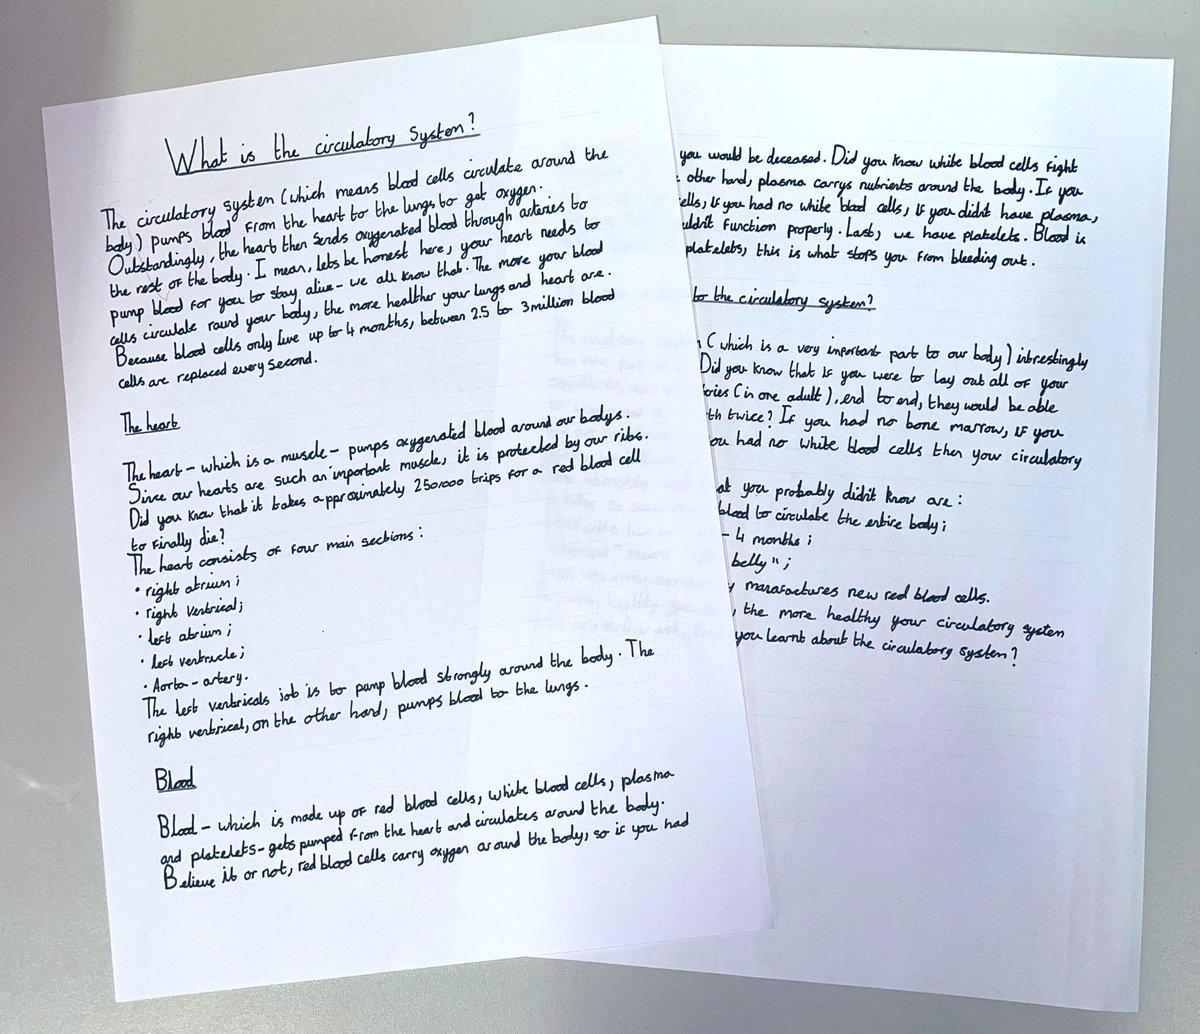 What is the circulatory System?
The circulatory system (which means blood cells circulate around the
body) pumps blood from the heart to the lungs to get oxygen.
Outstandingly, the heart then sends oxygenated blood through arteries to
the rest of the body. I mean, lets be honest here, your heart needs to
pump blood for you to stay alive - we all know that. The more your blood
cells circulate round your body, the more healther your lungs and heart are.
Because blood cells only live up to 4 months, between 2.5 to 3 million blood
cells are replaced every second.
The heart
The heart - which is a muscle - pumps oxygenated blood around our bodys.
Since our hearts are such an important muscle, it is protected by our ribs.
Did you know that it takes approximately 250,000 trips for a red blood cell
to finally die?
The heart consists of four main sections:
• right atrium;
• right ventrical;
• left atrium;
• left ventricle;
• Aorta - artery.
The left ventricals job is to pump blood strongly around the body. The
right ventrical, on the other hand, pumps blood to the lungs.
Blood
Blood - which is made up of red blood cells, white blood cells, plasma
and platelets - gets pumped from the heart and circulates around the body.
Believe it or not, red blood cells carry oxygen around the body, so if you had
you would be deceased. Did you know white blood cells fight
other hand, plasma carrys nutrients around the body. If you
cells, if you had no white blood cells, if you didn't have plasma,
uldn't function properly. Last, we have platelets. Blood is
platelets, this is what stops you from bleeding out.
to the circulatory system?
(which is a very important part to our body) intrestingly
Did you know that if you were to lay out all of your
ries (in one adult), end to end, they would be able
th twice? If you had no bone marrow, if you
ou had no white blood cells then your circulatory
at you probably didn't know are:
blood to circulate the entire body;
- 4 months;
belly";
y manafactures new red blood cells.
, the more healthy your circulatory system
you learnt about the circulatory system?